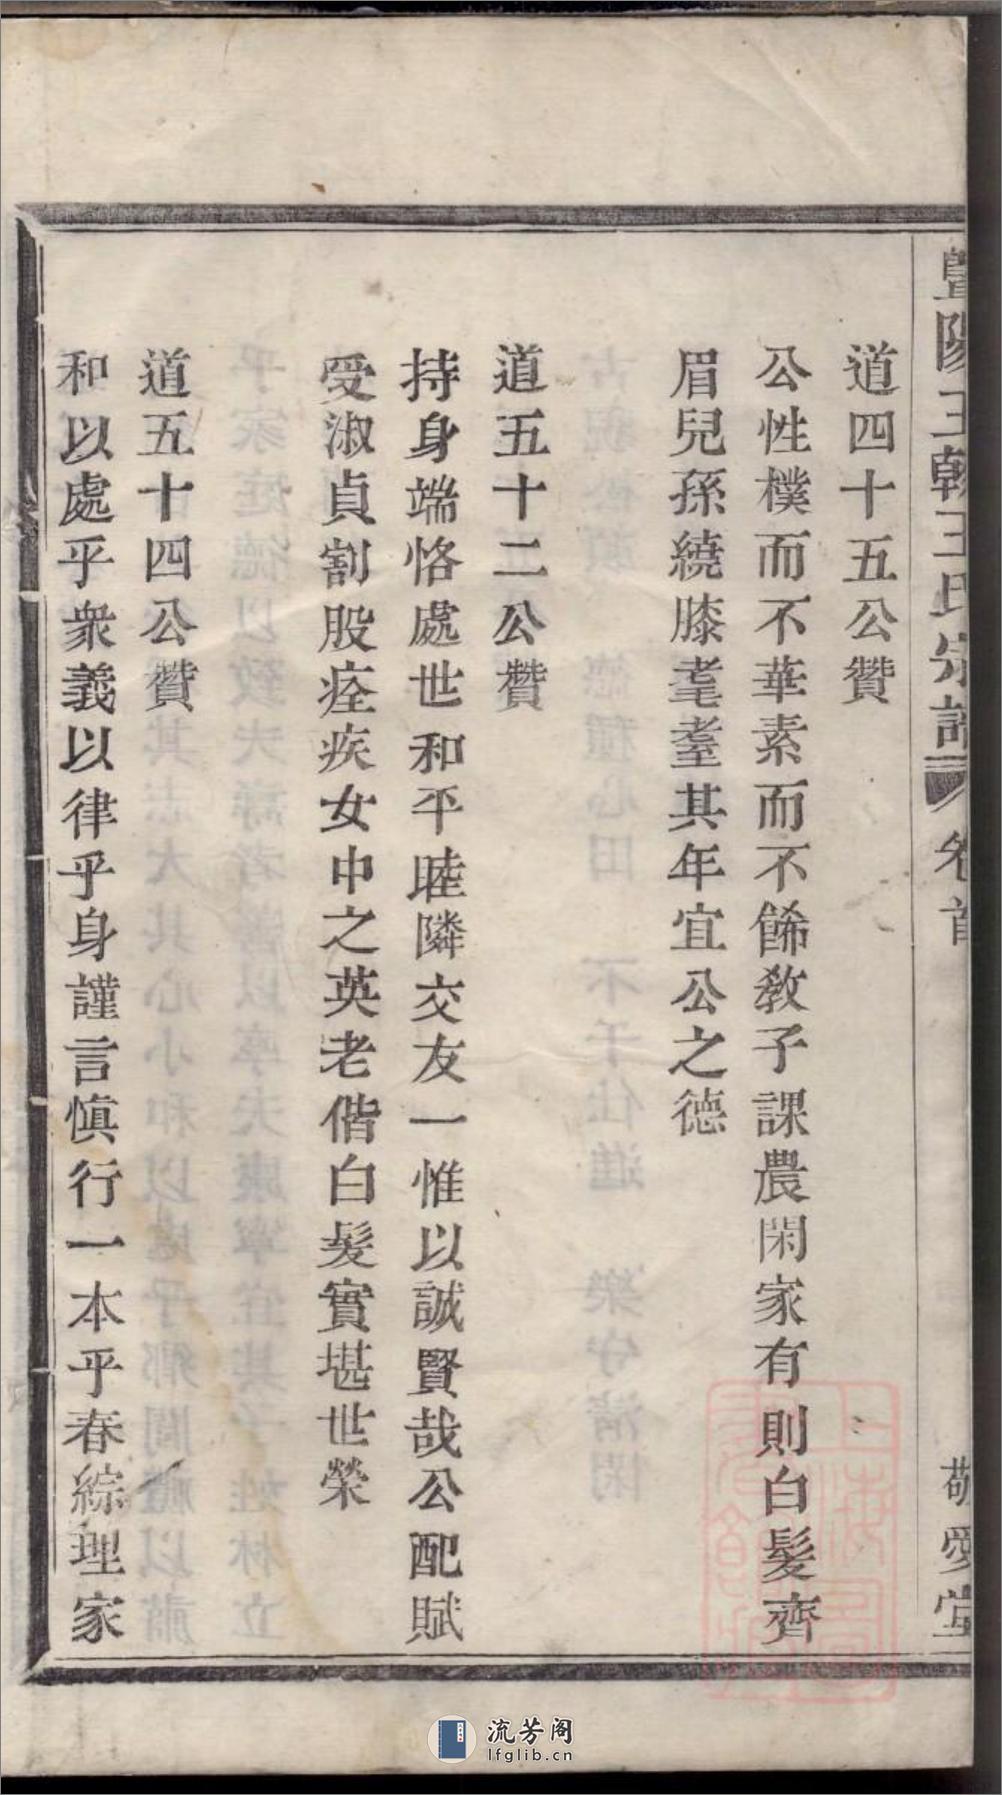 暨陽王朝王氏宗譜 卷首 敬愛堂
道四十五公贊
公性樸而不華素而不餙教子課農閑家有則白髮齊
眉兒孫繞膝耄耋其年宜公之德
道五十二公贊
持身端恪處世和平睦隣交友一惟以誠賢哉公配賦
受淑貞割股痊疾女中之英老偕白髮實堪世榮
道五十四公贊
和以處乎衆義以律乎身謹言慎行一本乎春綜理家
流芳阁
lfglib.cn